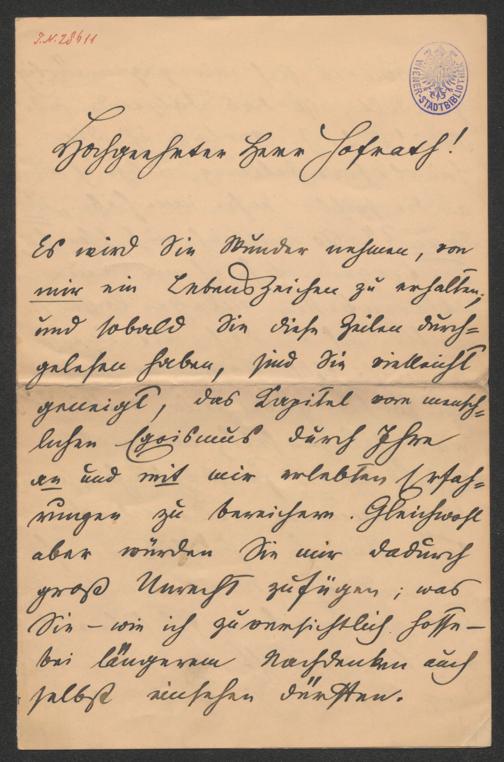 J.N. 28611
WIENER-STADTBIBLIOTHEK
Hochgeehrter Herr Hofrath!
Es wird Sie Wunder nehmen, von
mir ein Lebenszeichen zu erhalten,
und sobald Sie diese Zeilen durch=
gelesen haben, sind Sie vielleicht
geneigt, das Kapitel vom mensch=
lichen Egoismus durch Ihre
an und mit mir erlebten Erfah=
rungen zu bereichern. Gleichwohl
aber würden Sie mir dadurch
groß Unrecht zufügen; was
Sie – wie ich zuversichtlich hoffe –
bei längerem Nachdenken auch
selbst einsehen dürften.